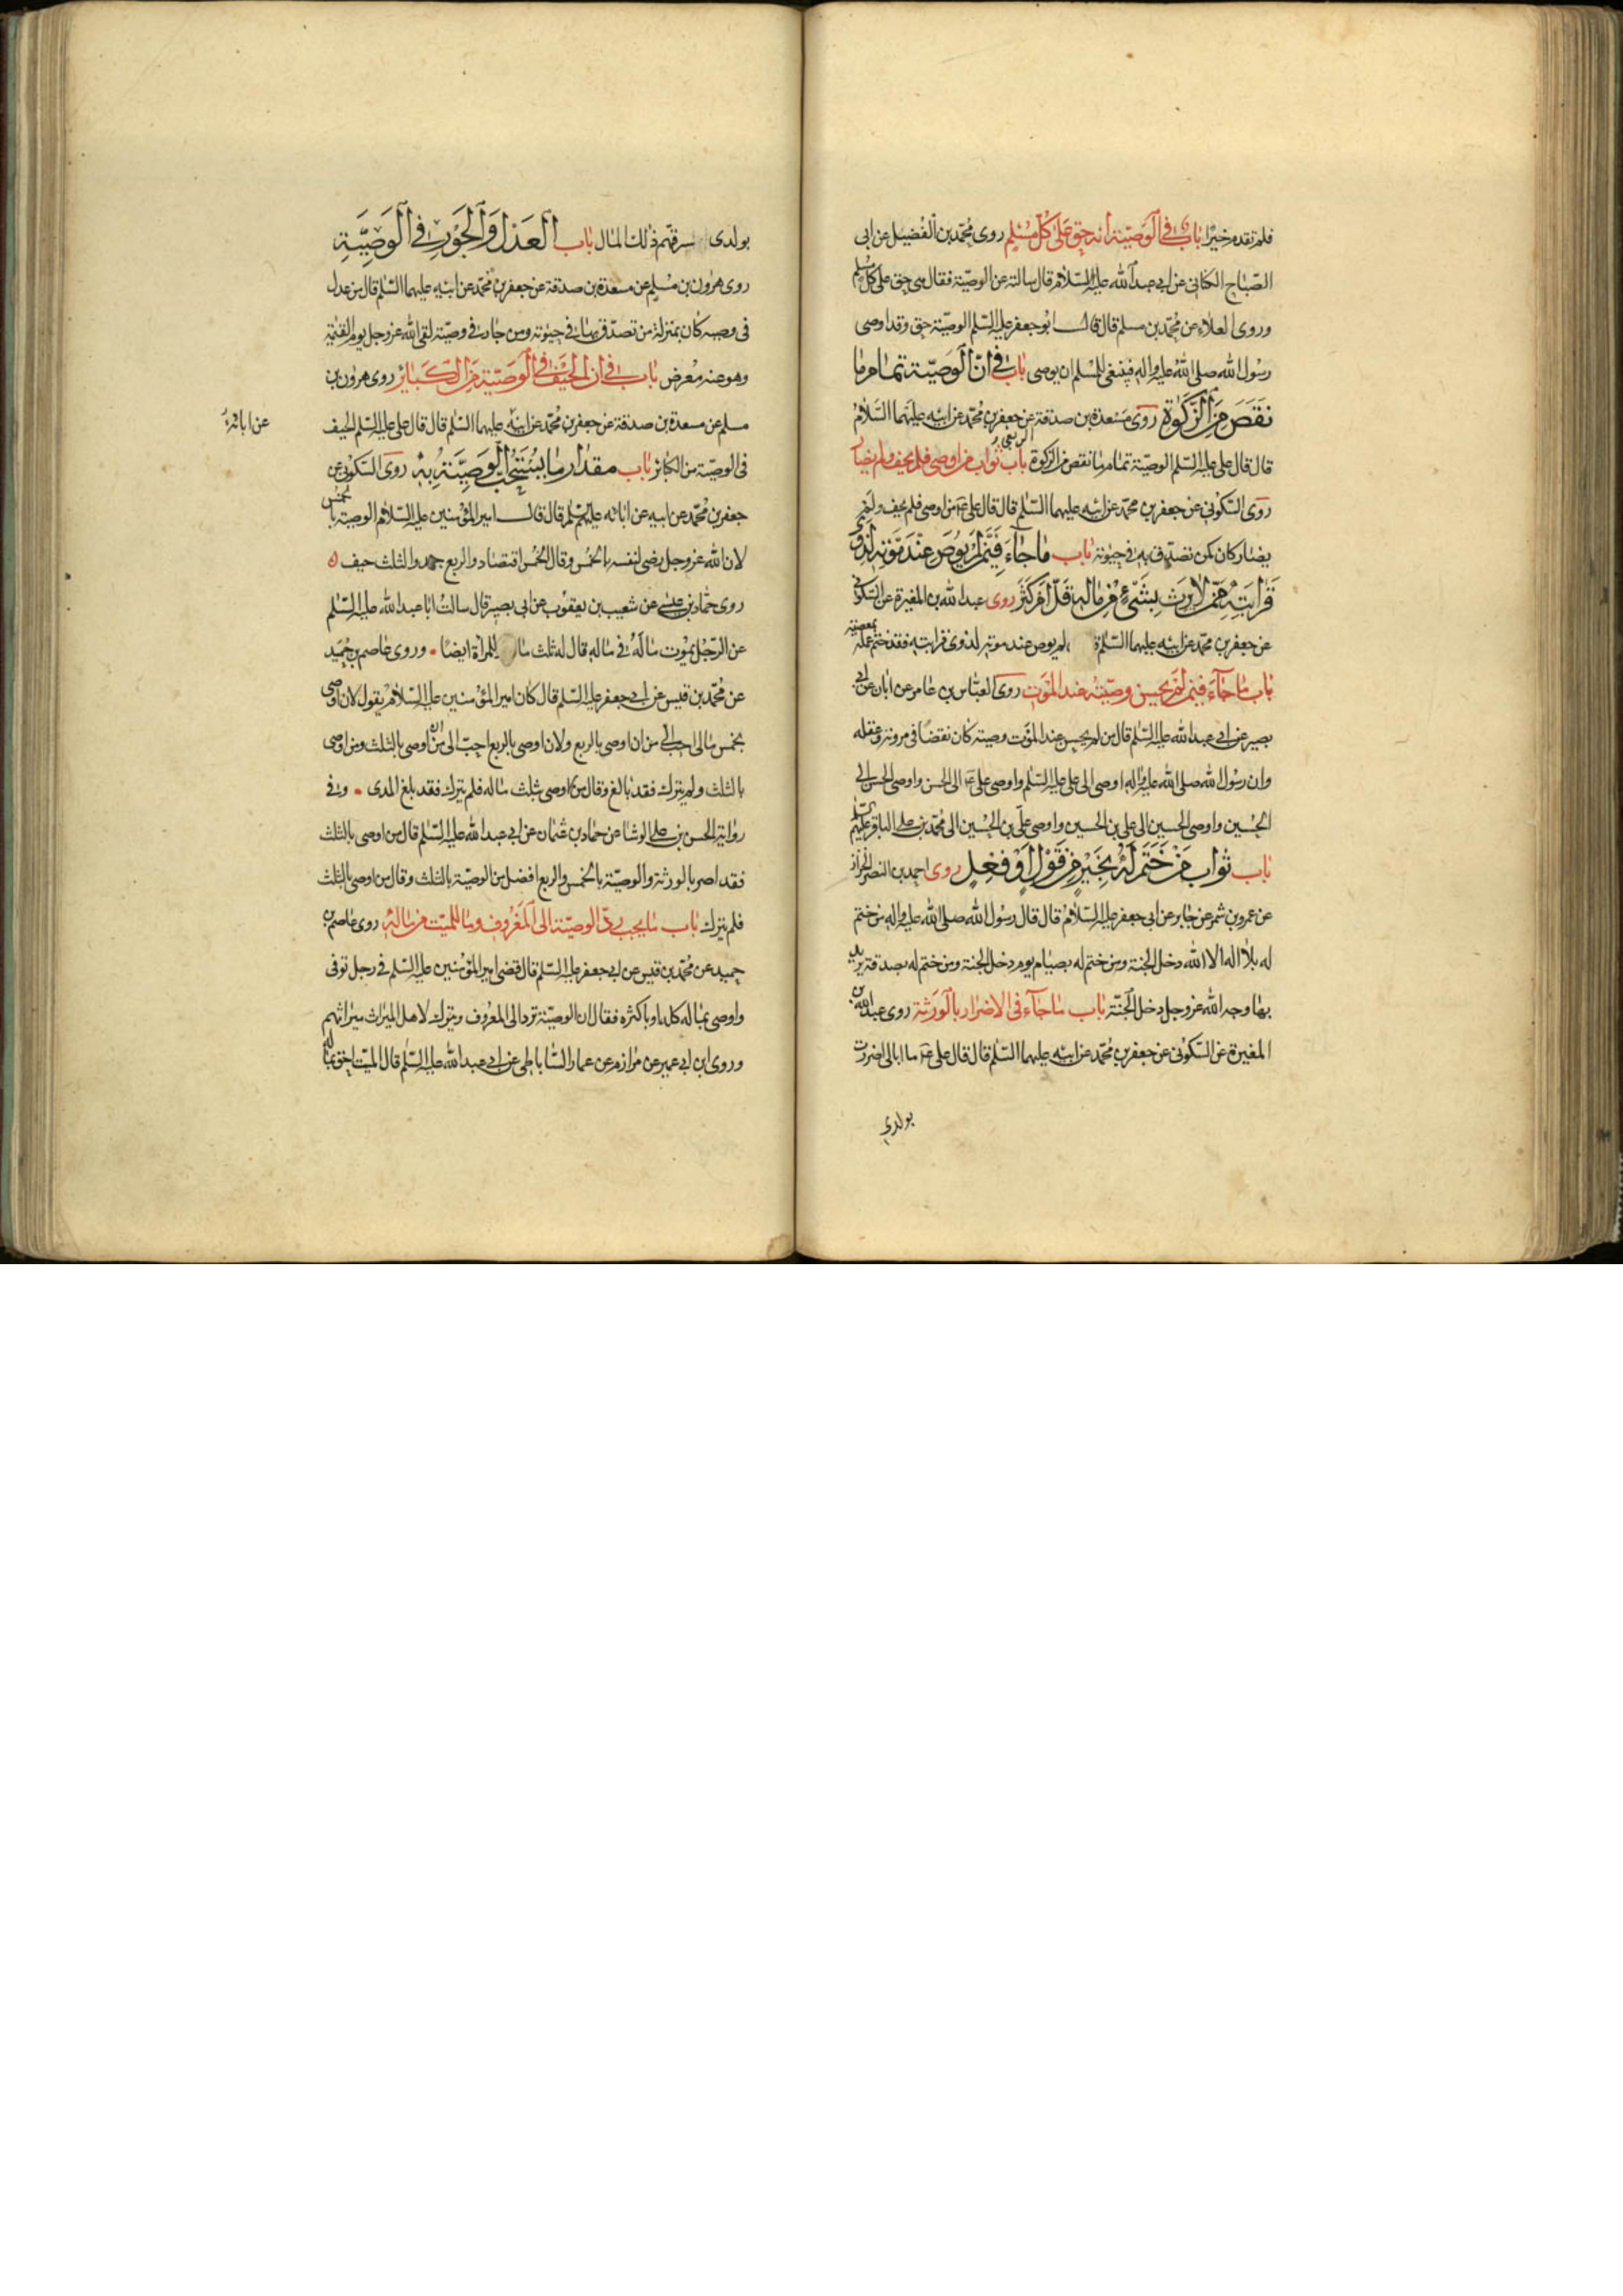 فلم تقدم خيرا باب في الوصية انه حق على كل مسلم روى محمد بن الفضيل عن ابى
الصباح الكنانى عن ابي عبد الله عليه السلام قال سالته عن الوصية فقال هى حق على كل مسلم
وروى العلاء عن محمد بن مسلم قال قال ابو جعفر عليه السلم الوصية حق وقد اوصى
رسول الله صلى الله عليه واله فينبغى للمسلم ان يوصى باب في ان الوصية تمام ما
نقص من الزكوة روى مسعدة بن صدقة عن جعفر بن محمد عن ابيه عليهما السلام
قال قال على عليه السلم الوصية تمام ما نقص من الزكوة باب ثواب من اوصى فلم يحف ولم يضار
روى السكونى عن جعفر بن محمد عن ابيه عليهما السلم قال قال على ع من اوصى فلم يحف ولم
يضار كان كمن تصدق به في حيوته باب ما جاء فيمن لم يوص عند موته لذوى
قرابته ممن لا يرث بشىء من ماله قل او كثر روى عبد الله بن المغيرة عن السكونى
عن جعفر بن محمد عن ابيه عليهما السلم لم يوص عند موته لذوى قرابته فقد ختم عمله بمعصية
باب ما جاء فيمن لم يحسن وصيته عند الموت روى العباس بن عامر عن ابان عن ابي
بصير عن ابي عبد الله عليه السلم قال من لم يحسن عند الموت وصيته كان نقصا في مروته وعقله
وان رسول الله صلى الله عليه واله اوصى الى على عليه السلم واوصى على ع الى الحسن واوصى الحسن الى
الحسين واوصى الحسين الى على بن الحسين واوصى على بن الحسين الى محمد بن على الباقر عليهم السلم
باب ثواب من ختم له بخير من قول او فعل روى احمد بن النضر الخزاز
عن عمرو بن شمر عن جابر عن ابى جعفر عليه السلام قال قال رسول الله صلى الله عليه واله من ختم
له بلا اله الا الله دخل الجنة ومن ختم له بصيام يوم دخل الجنة ومن ختم له بصدقة يريد
بها وجه الله عز وجل دخل الجنة باب ما جاء في الاضرار بالورثة روى عبد الله بن
المغيرة عن السكونى عن جعفر بن محمد عن ابيه عليهما السلم قال قال على ع ما ابالى اضررت
بولدي
بولدى سرقتهم ذلك المال باب العدل والجور في الوصية
روى هرون بن مسلم عن مسعدة بن صدقة عن جعفر بن محمد عن ابيه عليهما السلم قال من عدل
فى وصيته كان بمنزلة من تصدق بها في حيوته ومن جار في وصيته لقى الله عز وجل يوم القيمة
وهو عنه معرض باب في ان الحيف في الوصية من الكباير روى هرون بن
مسلم عن مسعدة بن صدقة عن جعفر بن محمد عن ابيه عليهما السلم قال قال على عليه السلم الحيف
عن ابائه
فى الوصية من الكبائر باب مقدار ما يستحب الوصية به روى السكونى عن
جعفر بن محمد عن ابيه عن ابائه عليهم السلم قال قال امير المؤمنين عليه السلام الوصية بالخمس
لان الله عز وجل رضى لنفسه بالخمس وقال الخمس اقتصاد والربع جهد والثلث حيف
روى حماد بن عيسى عن شعيب بن يعقوب عن ابى بصير قال سالت ابا عبد الله عليه السلم
عن الرجل يموت ماله في ماله قال له ثلث ماله للمراة ايضا وروى عاصم بن حميد
عن محمد بن قيس عن ابي جعفر عليه السلم قال كان امير المؤمنين عليه السلام يقول لان اوصى
بخمس مالى احب الى من ان اوصى بالربع ولان اوصى بالربع احب الى من ان اوصى بالثلث ومن اوصى
بالثلث ولم يترك فقد بالغ وقال من اوصى بثلث ماله فلم يترك فقد بلغ المدى وفي
رواية الحسن بن على الوشا عن حماد بن عثمان عن ابي عبد الله عليه السلم قال من اوصى بالثلث
فقد اضر بالورثة والوصية بالخمس والربع افضل من الوصية بالثلث وقال من اوصى بالثلث
فلم يترك باب ما يجب من رد الوصية الى المعروف وما للميت من ماله روى عاصم بن
حميد عن محمد بن قيس عن ابي جعفر عليه السلم قال قضى امير المؤمنين عليه السلم في رجل توفى
واوصى بماله كله او باكثره فقال ان الوصية ترد الى المعروف ويترك لاهل الميراث ميراثهم
وروى ابن ابي عمير عن مرازم عن عمار الساباطى عن ابي عبد الله عليه السلم قال الميت احق بماله